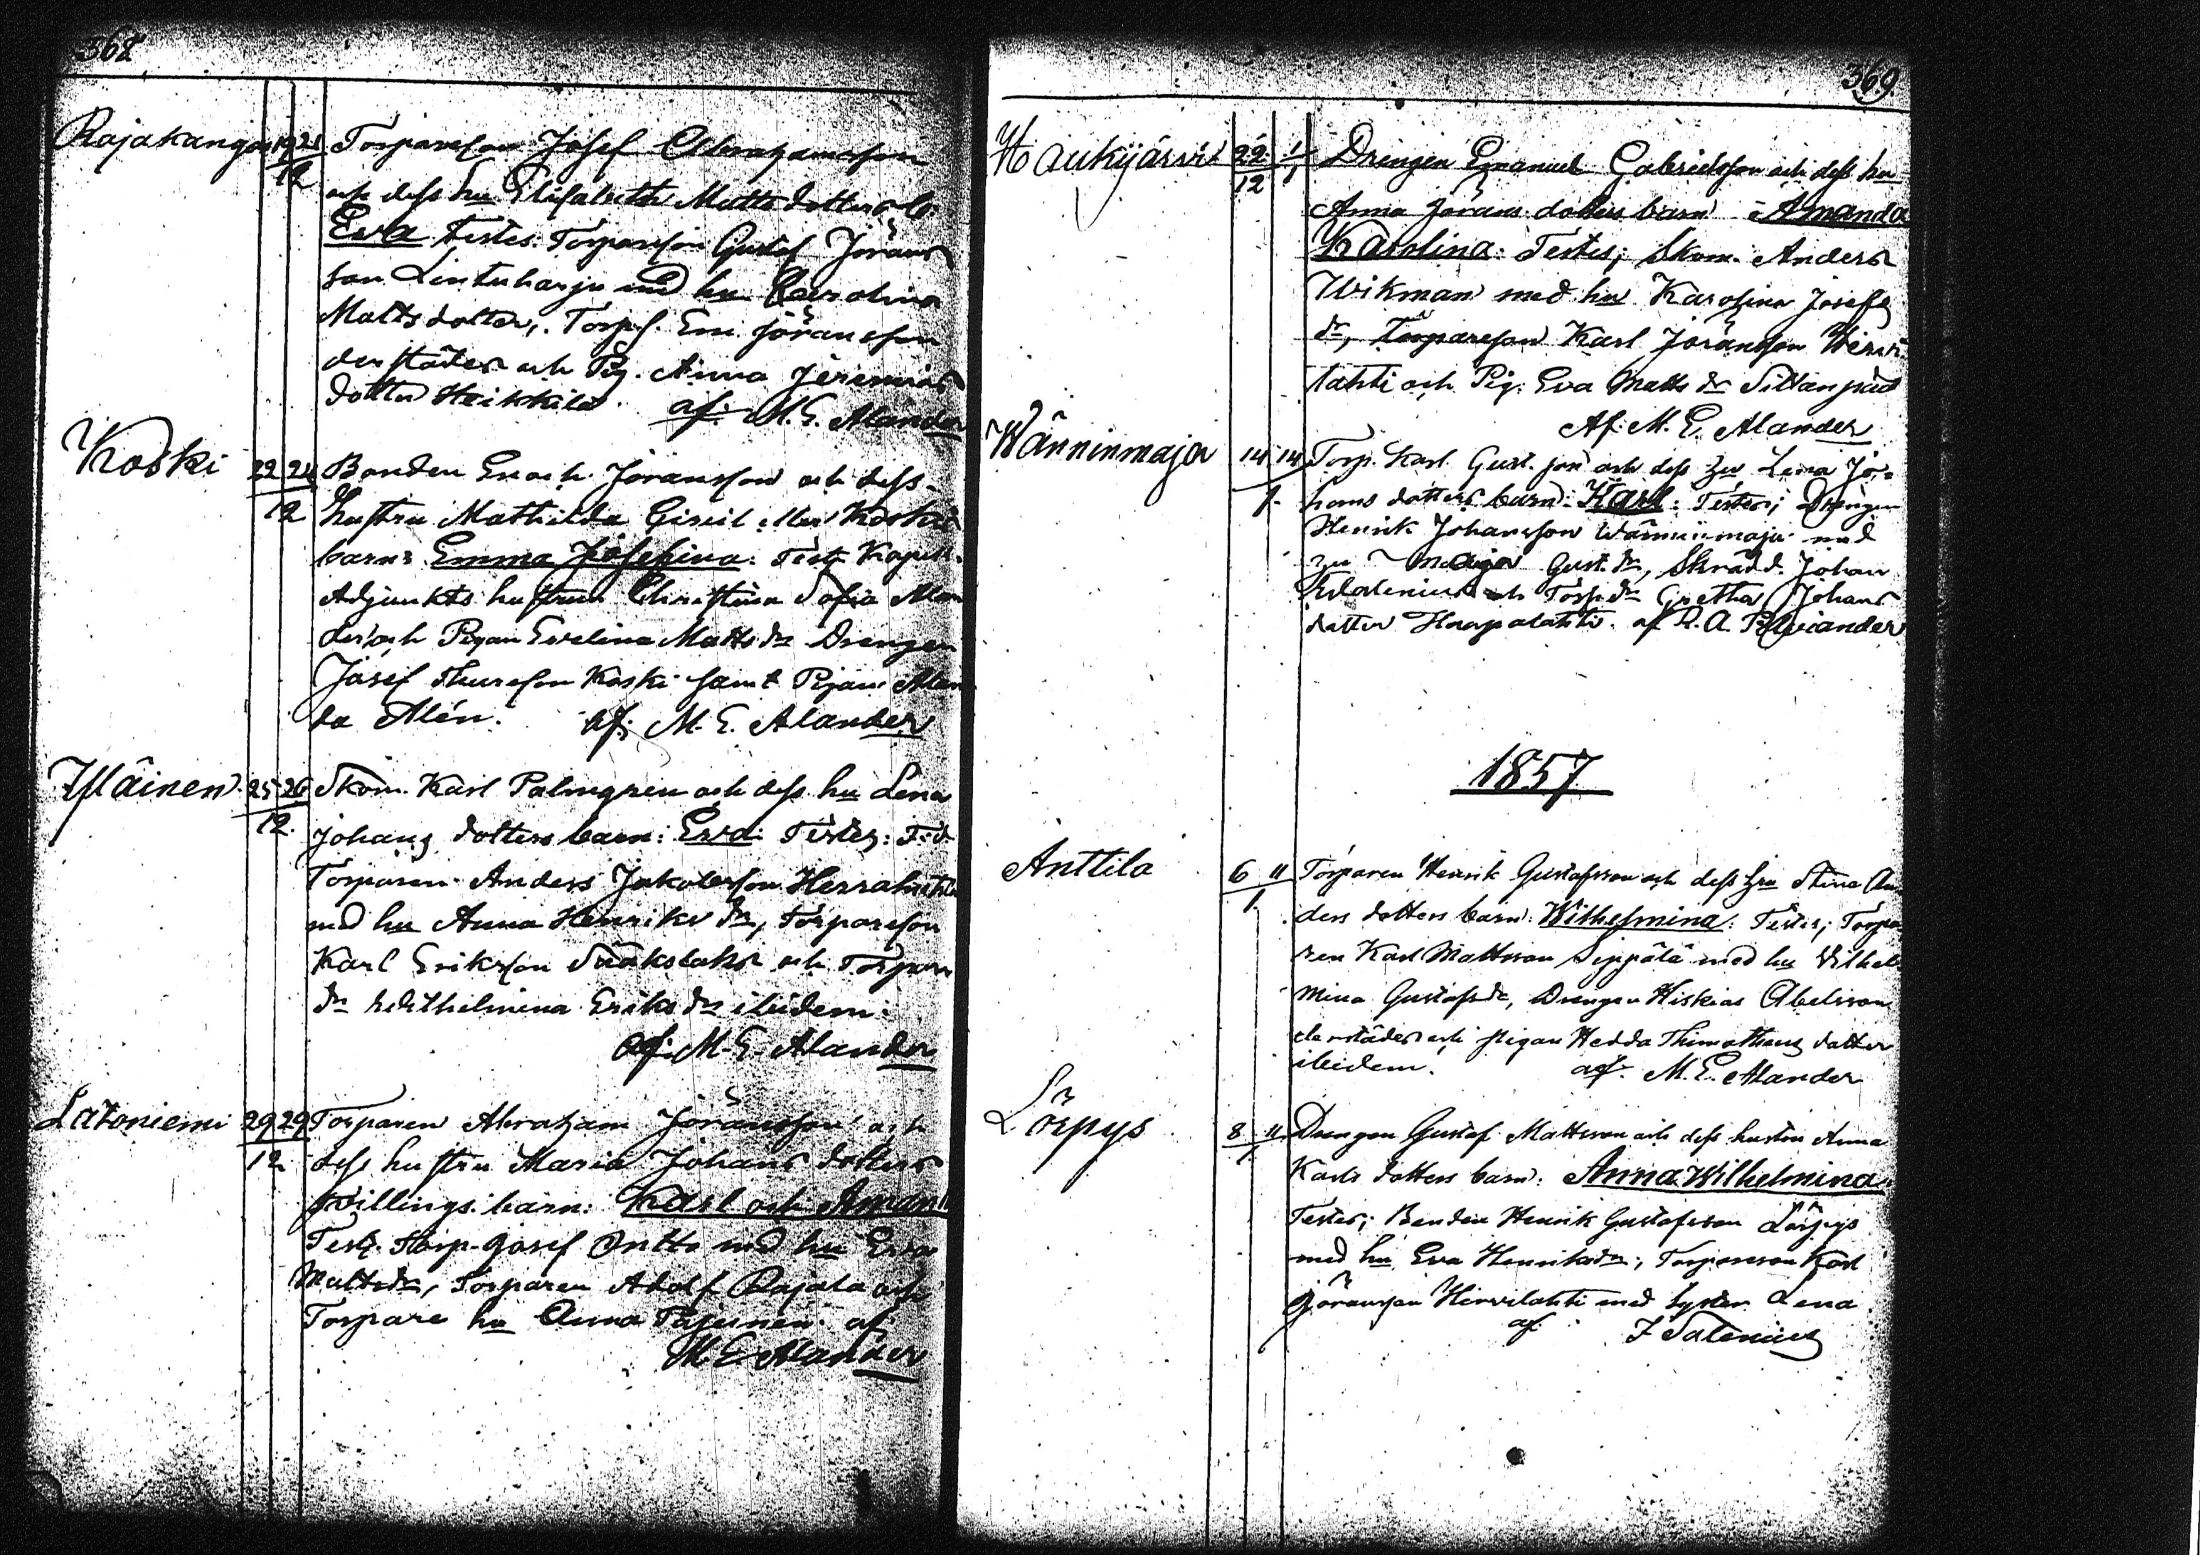 368
Rajakangas 19 21 Torpareson Josef Abrahamsson
12 och dess hu Elisabeth Matts dotters b:
Eva Testes: Torpareson Gustaf Jörans
son Lintuharju med hu Carolina
Matts dotter, Torp.s. Em. Jöransson
derstädes och Pig. Anna Jeremias
dotter Heikkilä. af: M. E. Alander
Koski 22 24 Bonden Enoch Jöransson och dess
12 hustru Mathilda
barn: Emma Josefina. Test: Kapell
Adjunkts hustrun Christina Sofia Alan
der och Pigan Evelina Matts dr Drengen
Josef Thuresson Koski samt Pigan Aman
da Alén. af: M. E. Alander
Yläinen 25 26 Skom. Karl Palmgren och dess hu Lena
12 Johans dotters barn: Eva: Testes: F:d
Torparen Anders Jakobsson
med hu Anna Henriks dr, Torpareson
Karl Eriksson och Torpare
dr Wilhelmina Eriks dr ibidem.
af: M. E. Alander
Latoniemi 29 29 Torparen Abraham Jöransson och
12 dess hustru Maria Johans dotters
tvillings barn: Karl och Amanda
Test: Torp. Josef Ontto med hu Eva
Mattsdr, Torparen Adolf Rajala och
Torpare hu Anna Pajunen af
M E Alander
369
Haukijärvi 22 1 Drengen Emanuel Gabrielsson och dess hu
12 1 Anna Jörans dotters barn Amanda
Karolina: Testes; Skom. Anders
Wikman med hu Karolina Josefs
dr, Torpareson Karl Jöransson Hirvi
lahti och Pig: Eva Matts dr Sillanpää
Af: M. E. Alander
Wänninmaja 14 14 Torp. Karl Gust. son och dess hu Lena Jo-
1 hans dotters barn: Karl: Testes; Drengen
Henrik Johansson Wänninmaja med
hu Maija Gust. dr, Skrädd. Johan
och Torp.dr Gretha Johans
dotter Haapalahti. af
1857
Anttila 6 11 Torparen Henrik Gustafsson och dess hu Stina An
1 ders dotters barn: Wilhelmina: Testes; Torpa
ren Karl Mattsson Seppälä med hu Wilhel
mina Gustafsdr, Drengen Hiskias Abelsson
derstädes och pigan Hedda Thimotheus dotter
ibidem. af. M. E. Alander
Lörpys 8 11 Drengen Gustaf Mattsson och dess hustru Anna
1 Karls dotters barn: Anna Wilhelmina
Testes; Bonden Henrik Gustafsson Lörpys
med hu Eva Henriksdr, Torpareson Karl
Jöransson Hirvilahti med syster Lena
af F Salenius